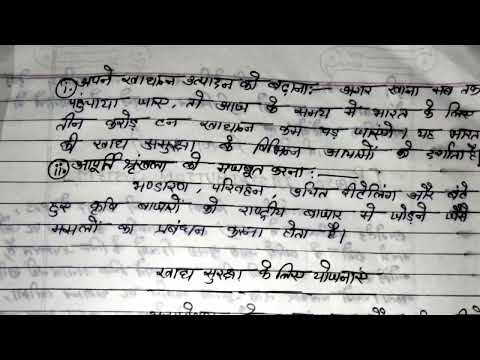 i. अपने खाद्यान्न उत्पादन को बढ़ाना:- अगर खाना सब तक
पहुंचाया जाए, तो आज के समय में भारत के लिए
तीन करोड़ टन खाद्यान्न कम पड़ जाएंगे। यह भारत
की खाद्य असुरक्षा के विभिन्न आयामों को दर्शाता है।
ii. आपूर्ति श्रृंखला को मजबूत करना:-
भण्डारण, परिवहन, उचित रीटेलिंग और बंटे
हुए कृषि बाजारों को राष्ट्रीय बाजार में जोड़ने जैसे
मसलों का प्रबंधन करना होता है।
खाद्य सुरक्षा के लिए योजनाएं